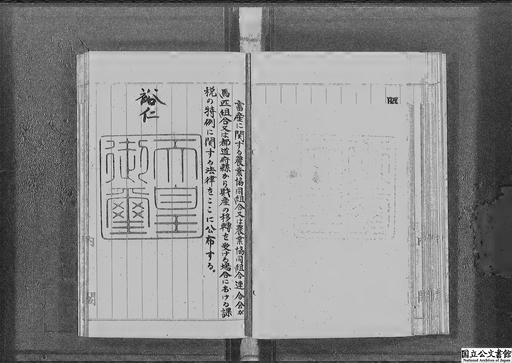 畜産に関する農業協同組合又は農業協同組合連合会が
馬匹組合又は都道府県から財産の移轉を受ける場合における課
税の特例に関する法律をここに公布する。
裕仁
天皇
御璽
国立公文書館
National Archives of Japan